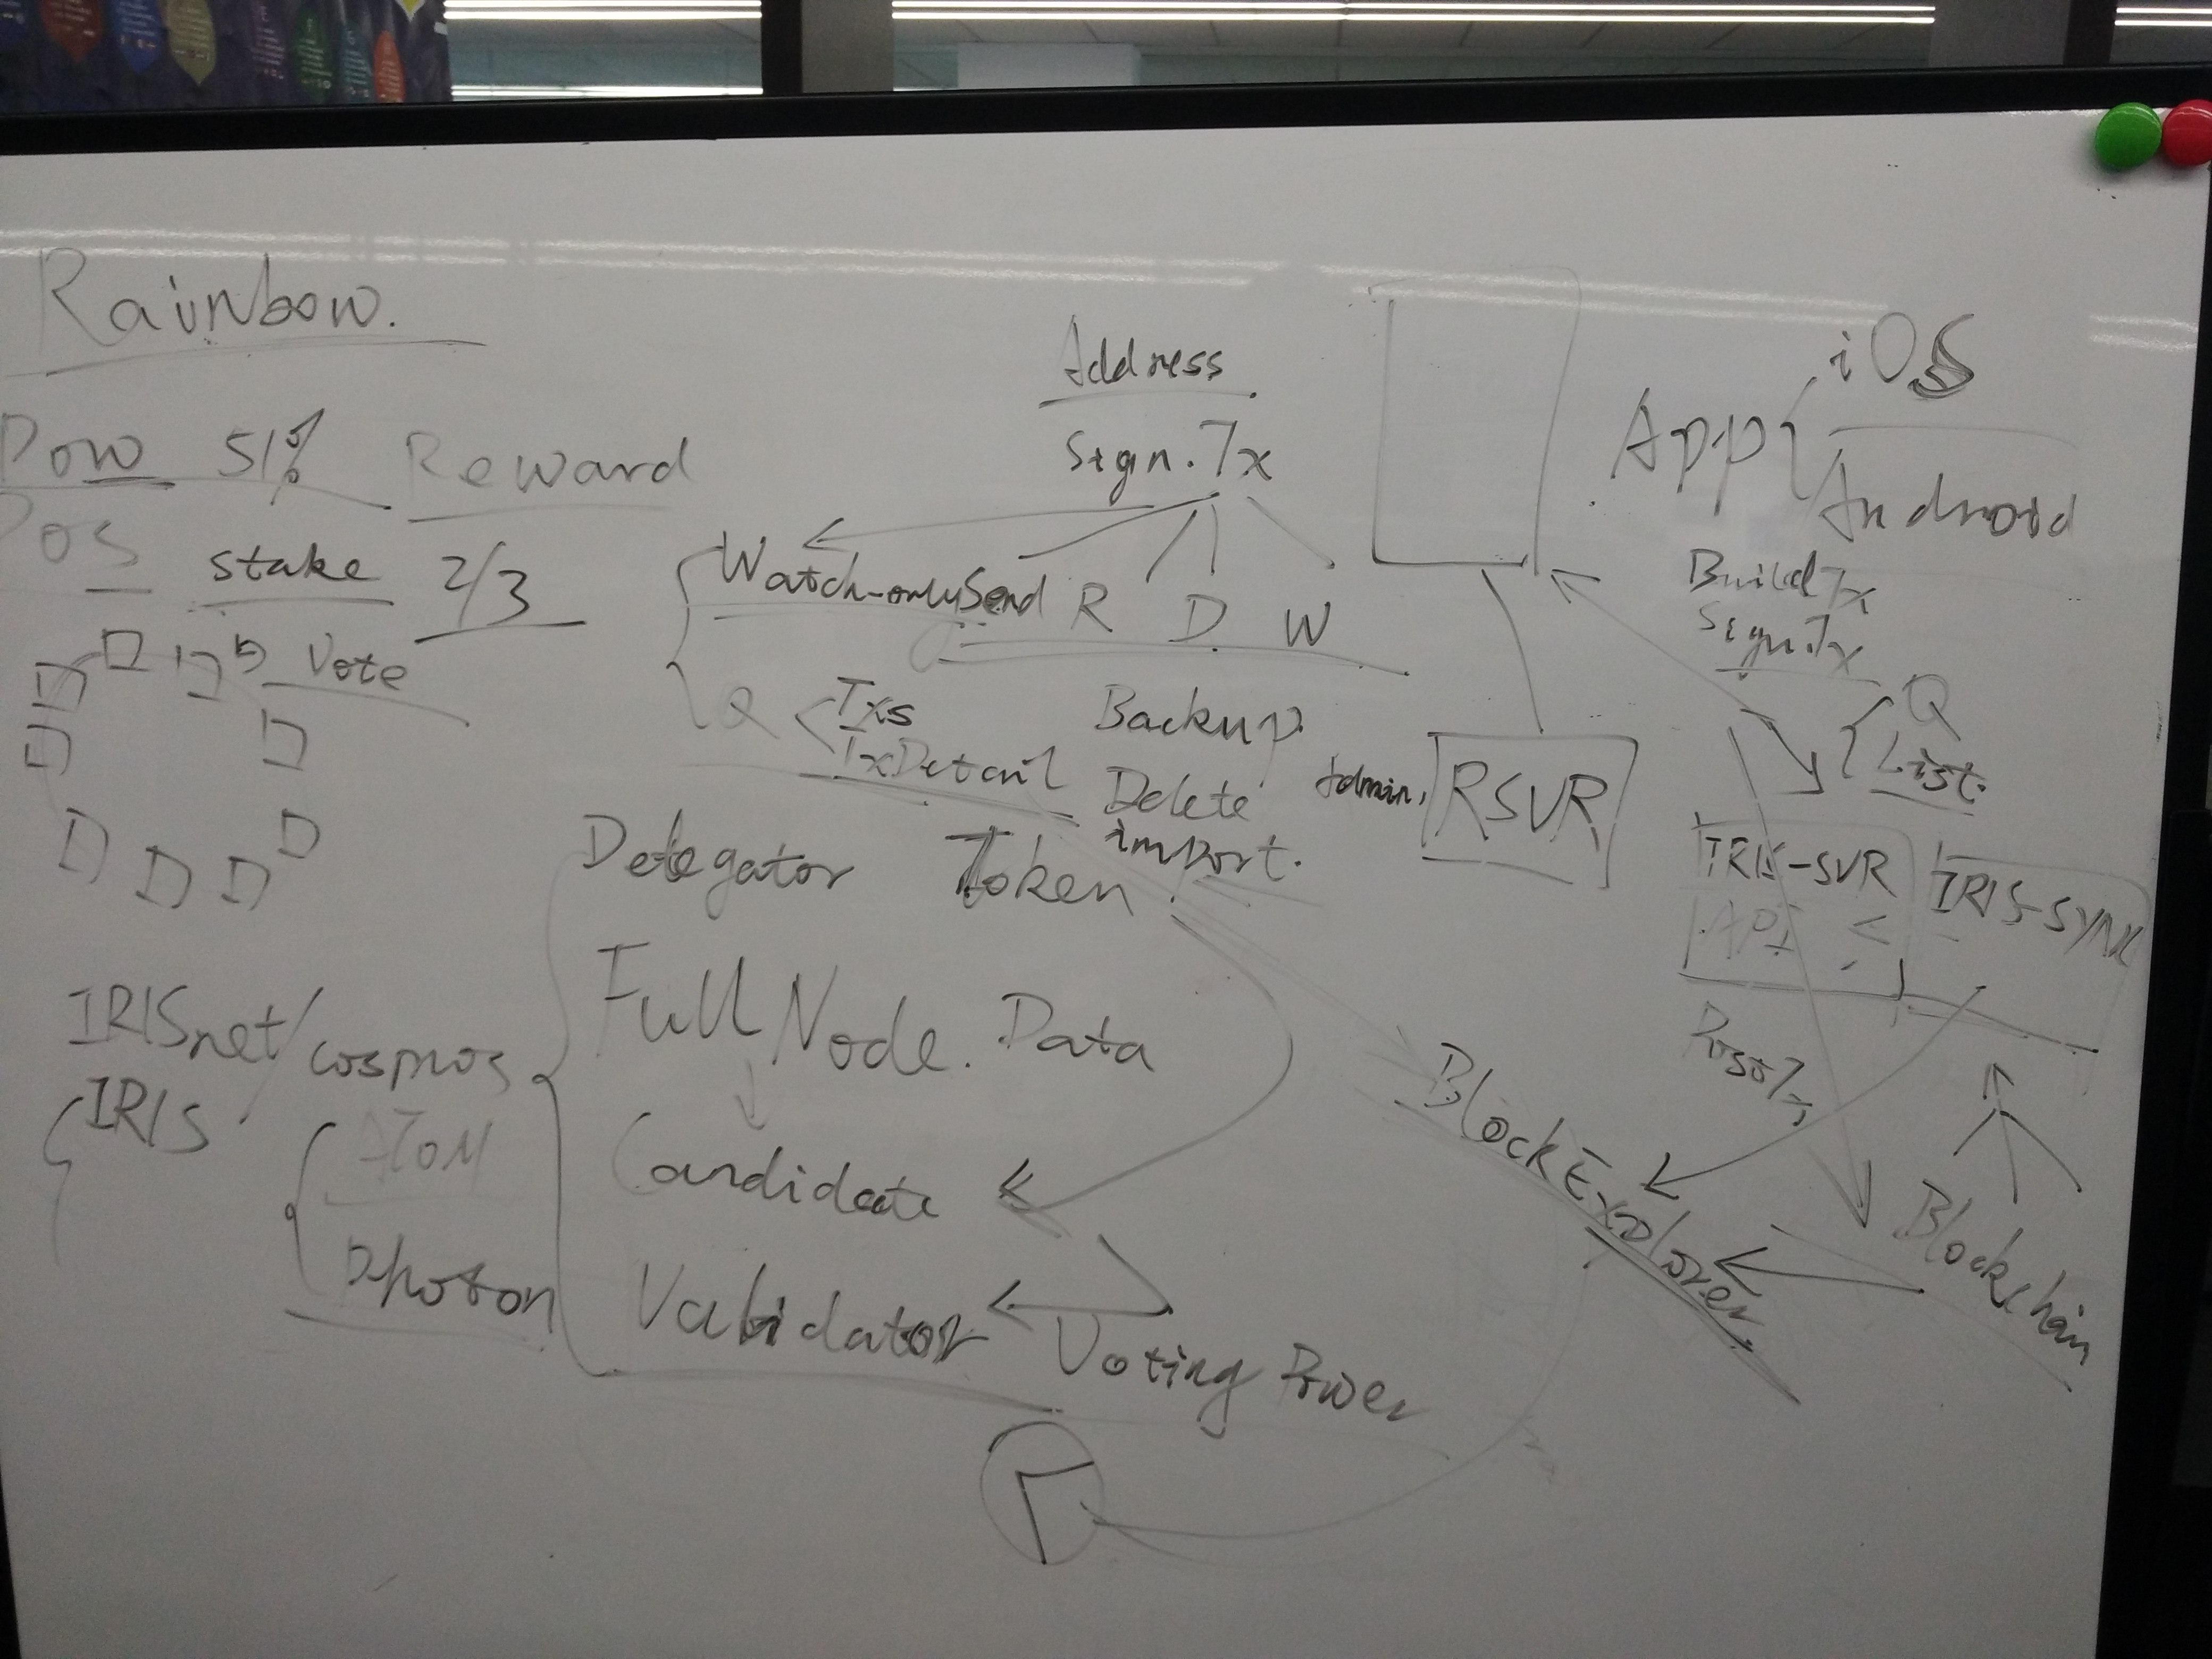 Rainbow.
Pow 51% Reward
Pos stake 2/3
Vote
IRISnet/cosmos
IRIS
ATOM
Photon
Address
Sign.Tx
Watch-only Send R D W
Q
Txs
TxDetail
Backup
Delete
import.
Delegator Token
Full Node. Data
Candidate
Validator
Voting Power
App
iOS
Android
Build Tx
Sign.Tx
Q
List.
Admin.
RSVR
IRIS-SVR
API
IRIS-SYNC
Post Tx
BlockExplorer
Blockchain